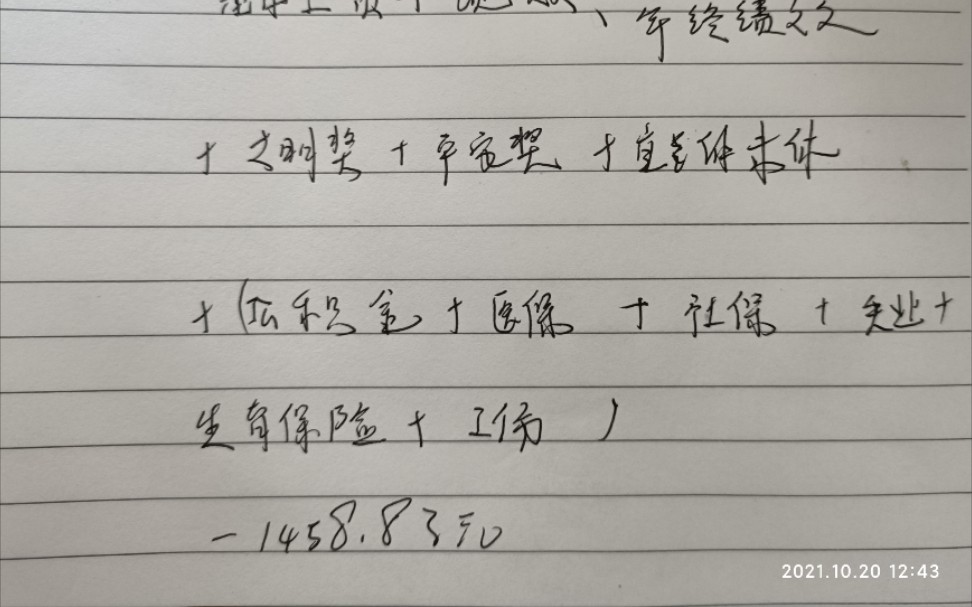 、年终绩效
+ 文明奖 + 平安奖 + 宜学休未休
+ (公积金 + 医保 + 社保 + 失业 +
生育保险 + 工伤 )
- 1458.83元
2021.10.20 12:43